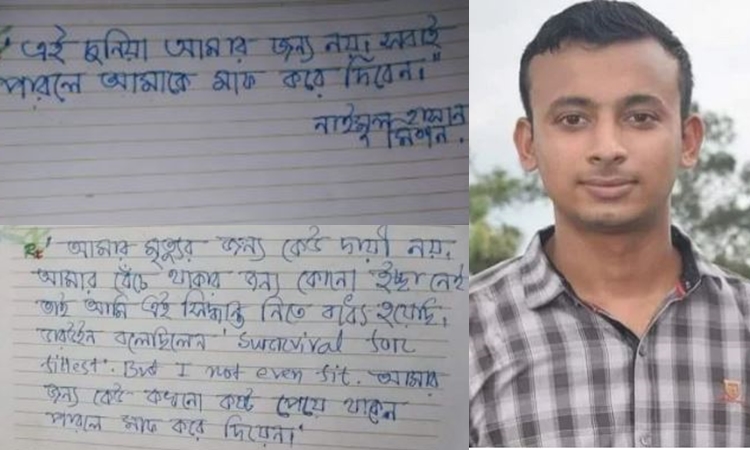 ' এই দুনিয়া আমার জন্য নয়। সবাই
পারলে আমাকে মাফ করে দিবেন।"
নাইমুল হাসান
মিশন.
' আমার মৃত্যুর জন্য কেউ দায়ী নয়,
আমার বেঁচে থাকার জন্য কোনো ইচ্ছা নেই
তাই আমি এই সিদ্ধান্ত নিতে বাধ্য হয়েছি,
ডারউইন বলেছিলেন ' Survival for
fittest'. But I not even fit. আমার
জন্য কেউ কখনো কষ্ট পেয়ে থাকেন
পারলে মাফ করে দিয়েন।'